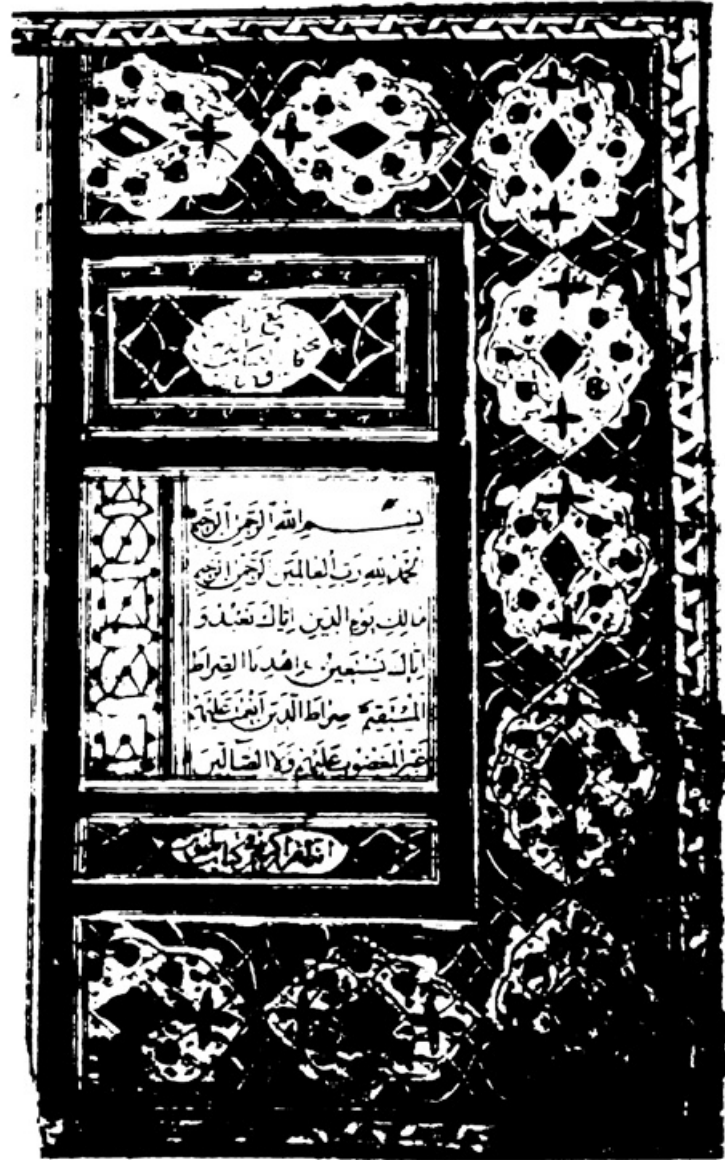 بِسْمِ اللهِ الرَّحْمٰنِ الرَّحِيمِ
الْحَمْدُ لِلهِ رَبِّ الْعَالَمِينَ الرَّحْمٰنِ الرَّحِيمِ
مَالِكِ يَوْمِ الدِّينِ اِيَّاكَ نَعْبُدُ وَ
اِيَّاكَ نَسْتَعِينُ اِهْدِنَا الصِّرَاطَ
الْمُسْتَقِيمَ صِرَاطَ الَّذِينَ اَنْعَمْتَ عَلَيْهِمْ
غَيْرِ الْمَغْضُوبِ عَلَيْهِمْ وَلَا الضَّالِّينَ